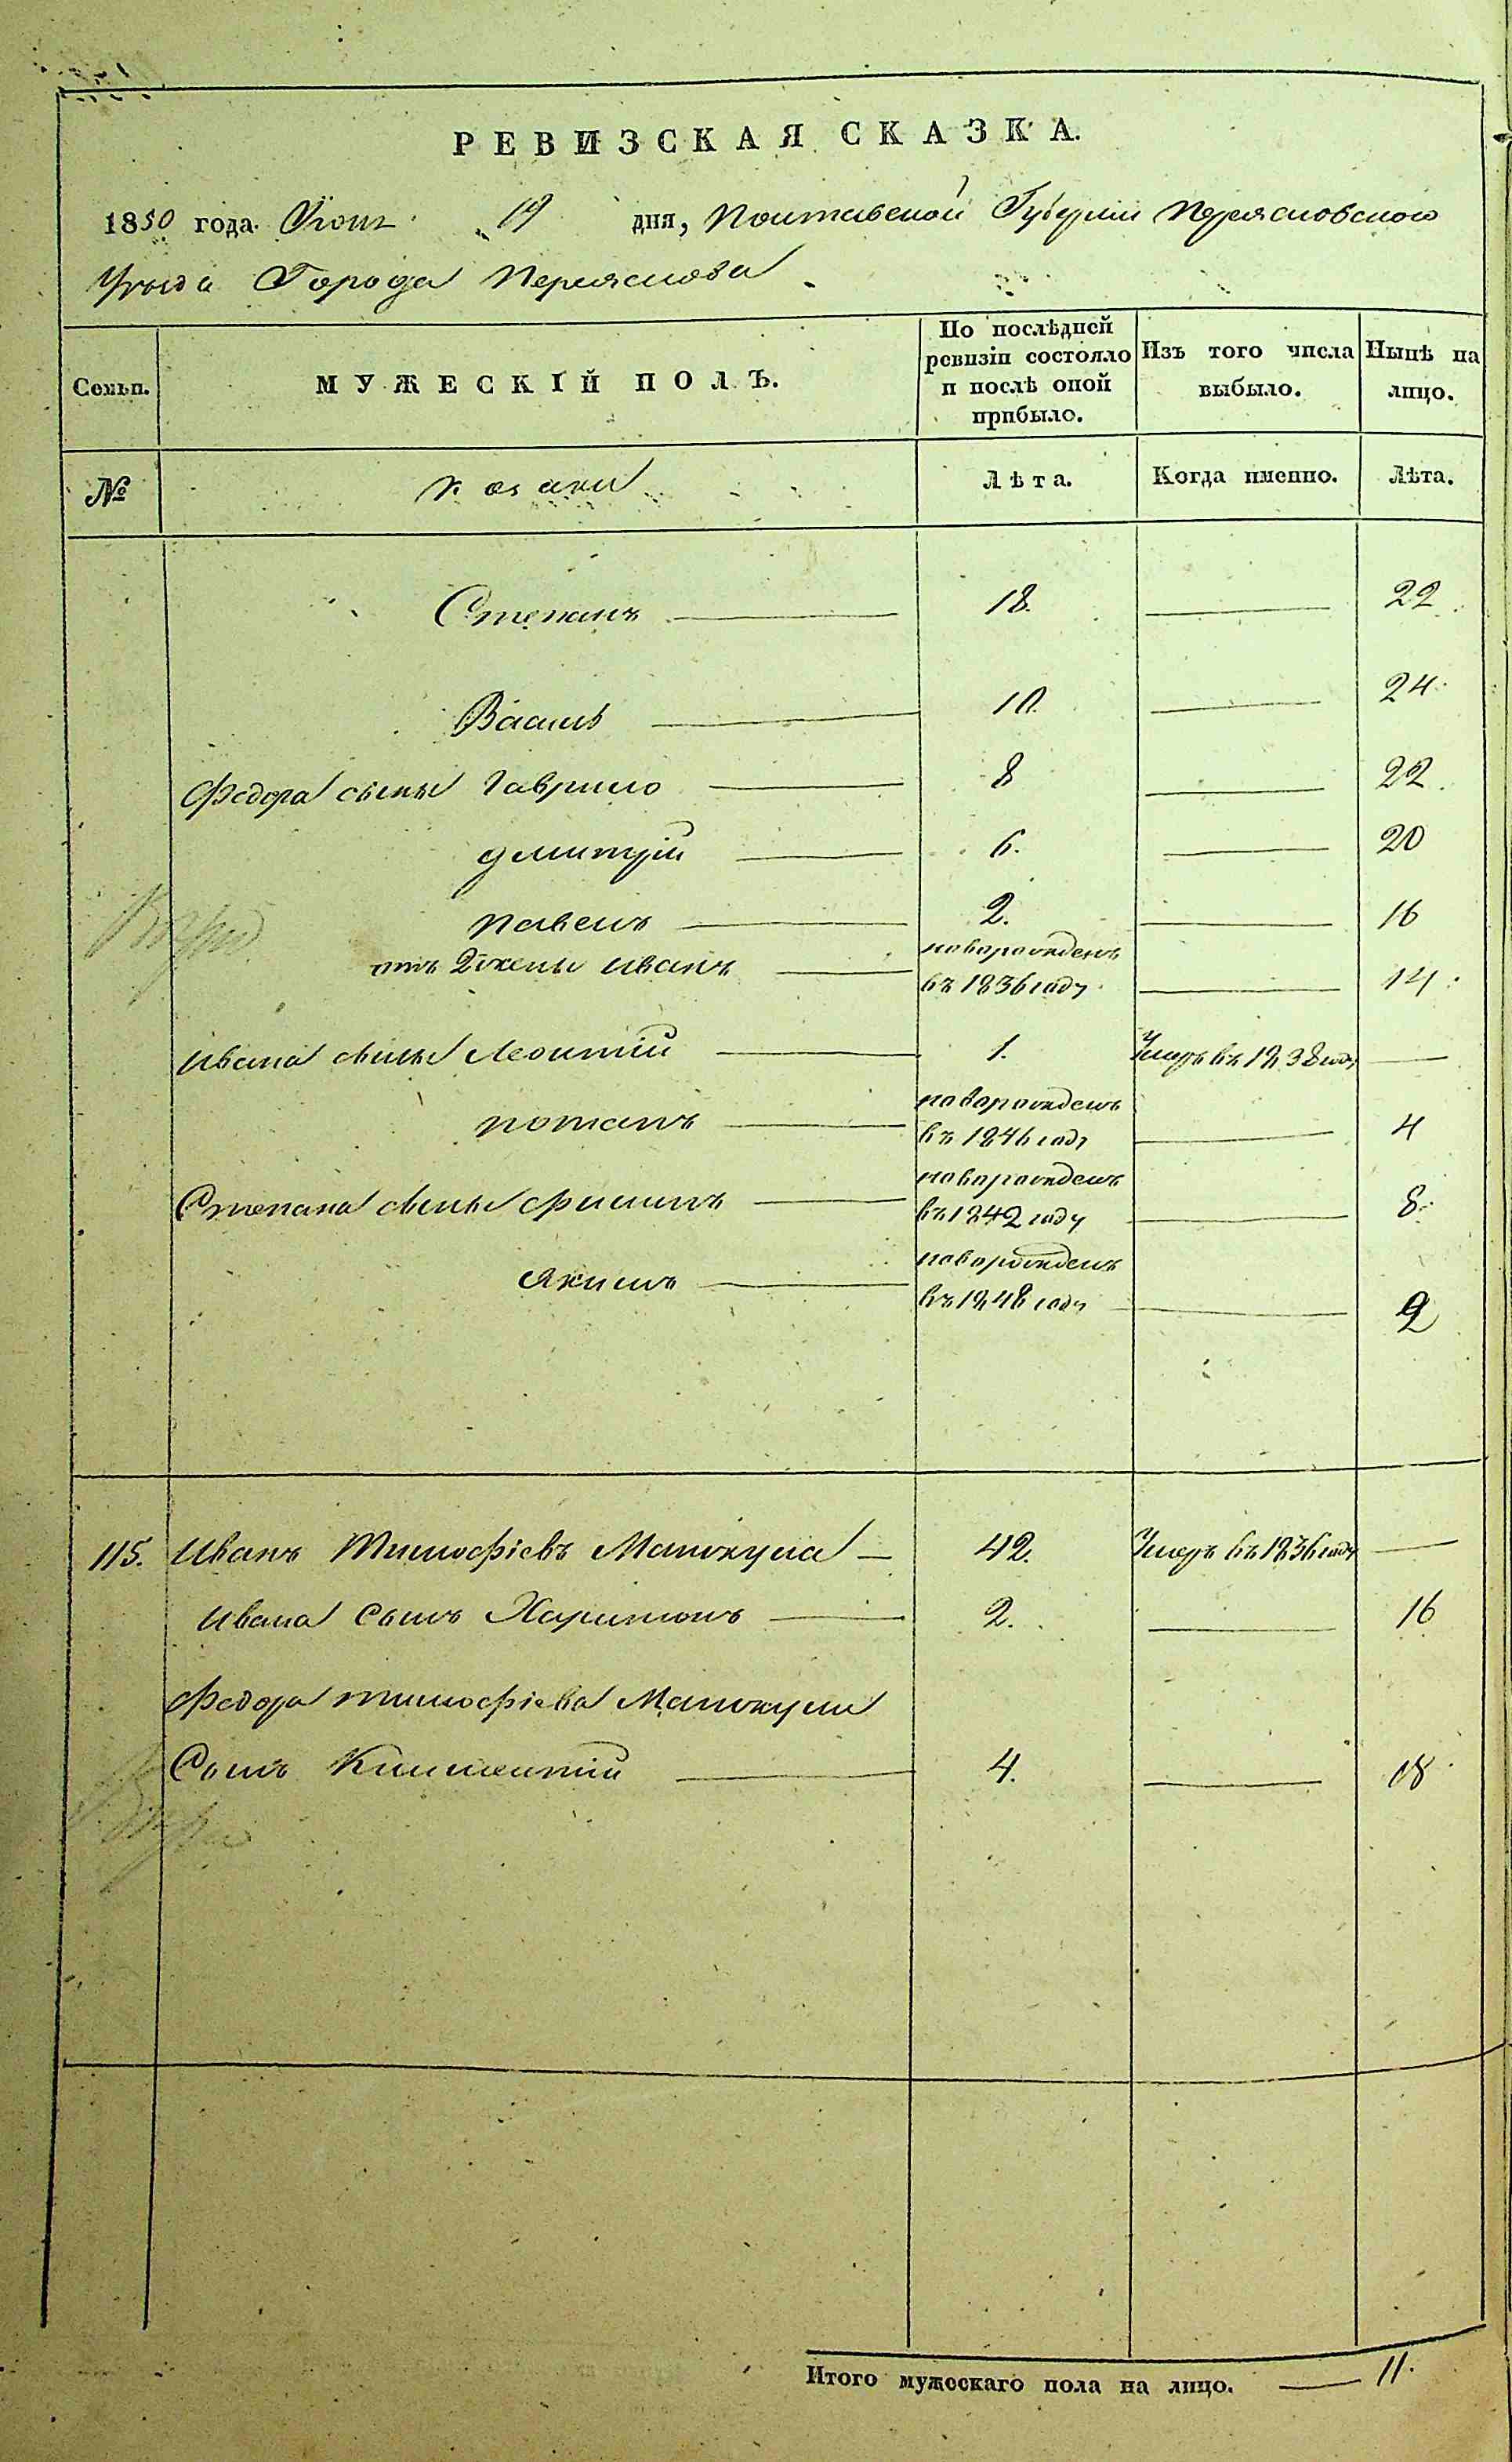 РЕВИЗСКАЯ СКАЗКА.
1850 года. 19 дня, Полтавской Губерніи Переяславского
Уѣзда Города Переяслова
Семьи.
МУЖЕСКІЙ ПОЛЪ.
По послѣдней ревизіи состояло и послѣ оной прибыло.
Изъ того числа выбыло.
Нынѣ на лицо.
№
козаки
Лѣта.
Когда именно.
Лѣта.
Степанъ 18. 22
Василь 10. 24
Федора сыны Гаврило 8 22
Дмитрій 6. 20
Павелъ 2. 16
отъ 2й жены Иванъ новорожденъ
въ 1836 году 14
Ивана сыны Леонтій 1. Умеръ въ 1838 году
Потапъ новорожденъ
въ 1846 году 4
Степана сыны Филипъ новорожденъ
въ 1842 году 8
Якимъ новорожденъ
въ 1848 году 2
115. Иванъ Тимофіевъ 42. Умеръ въ 1836 году
Ивана сынъ Харитонъ 2. 16
Федора Тимофіева
Сынъ Климентій 4. 18
Итого мужескаго пола на лицо. 11.